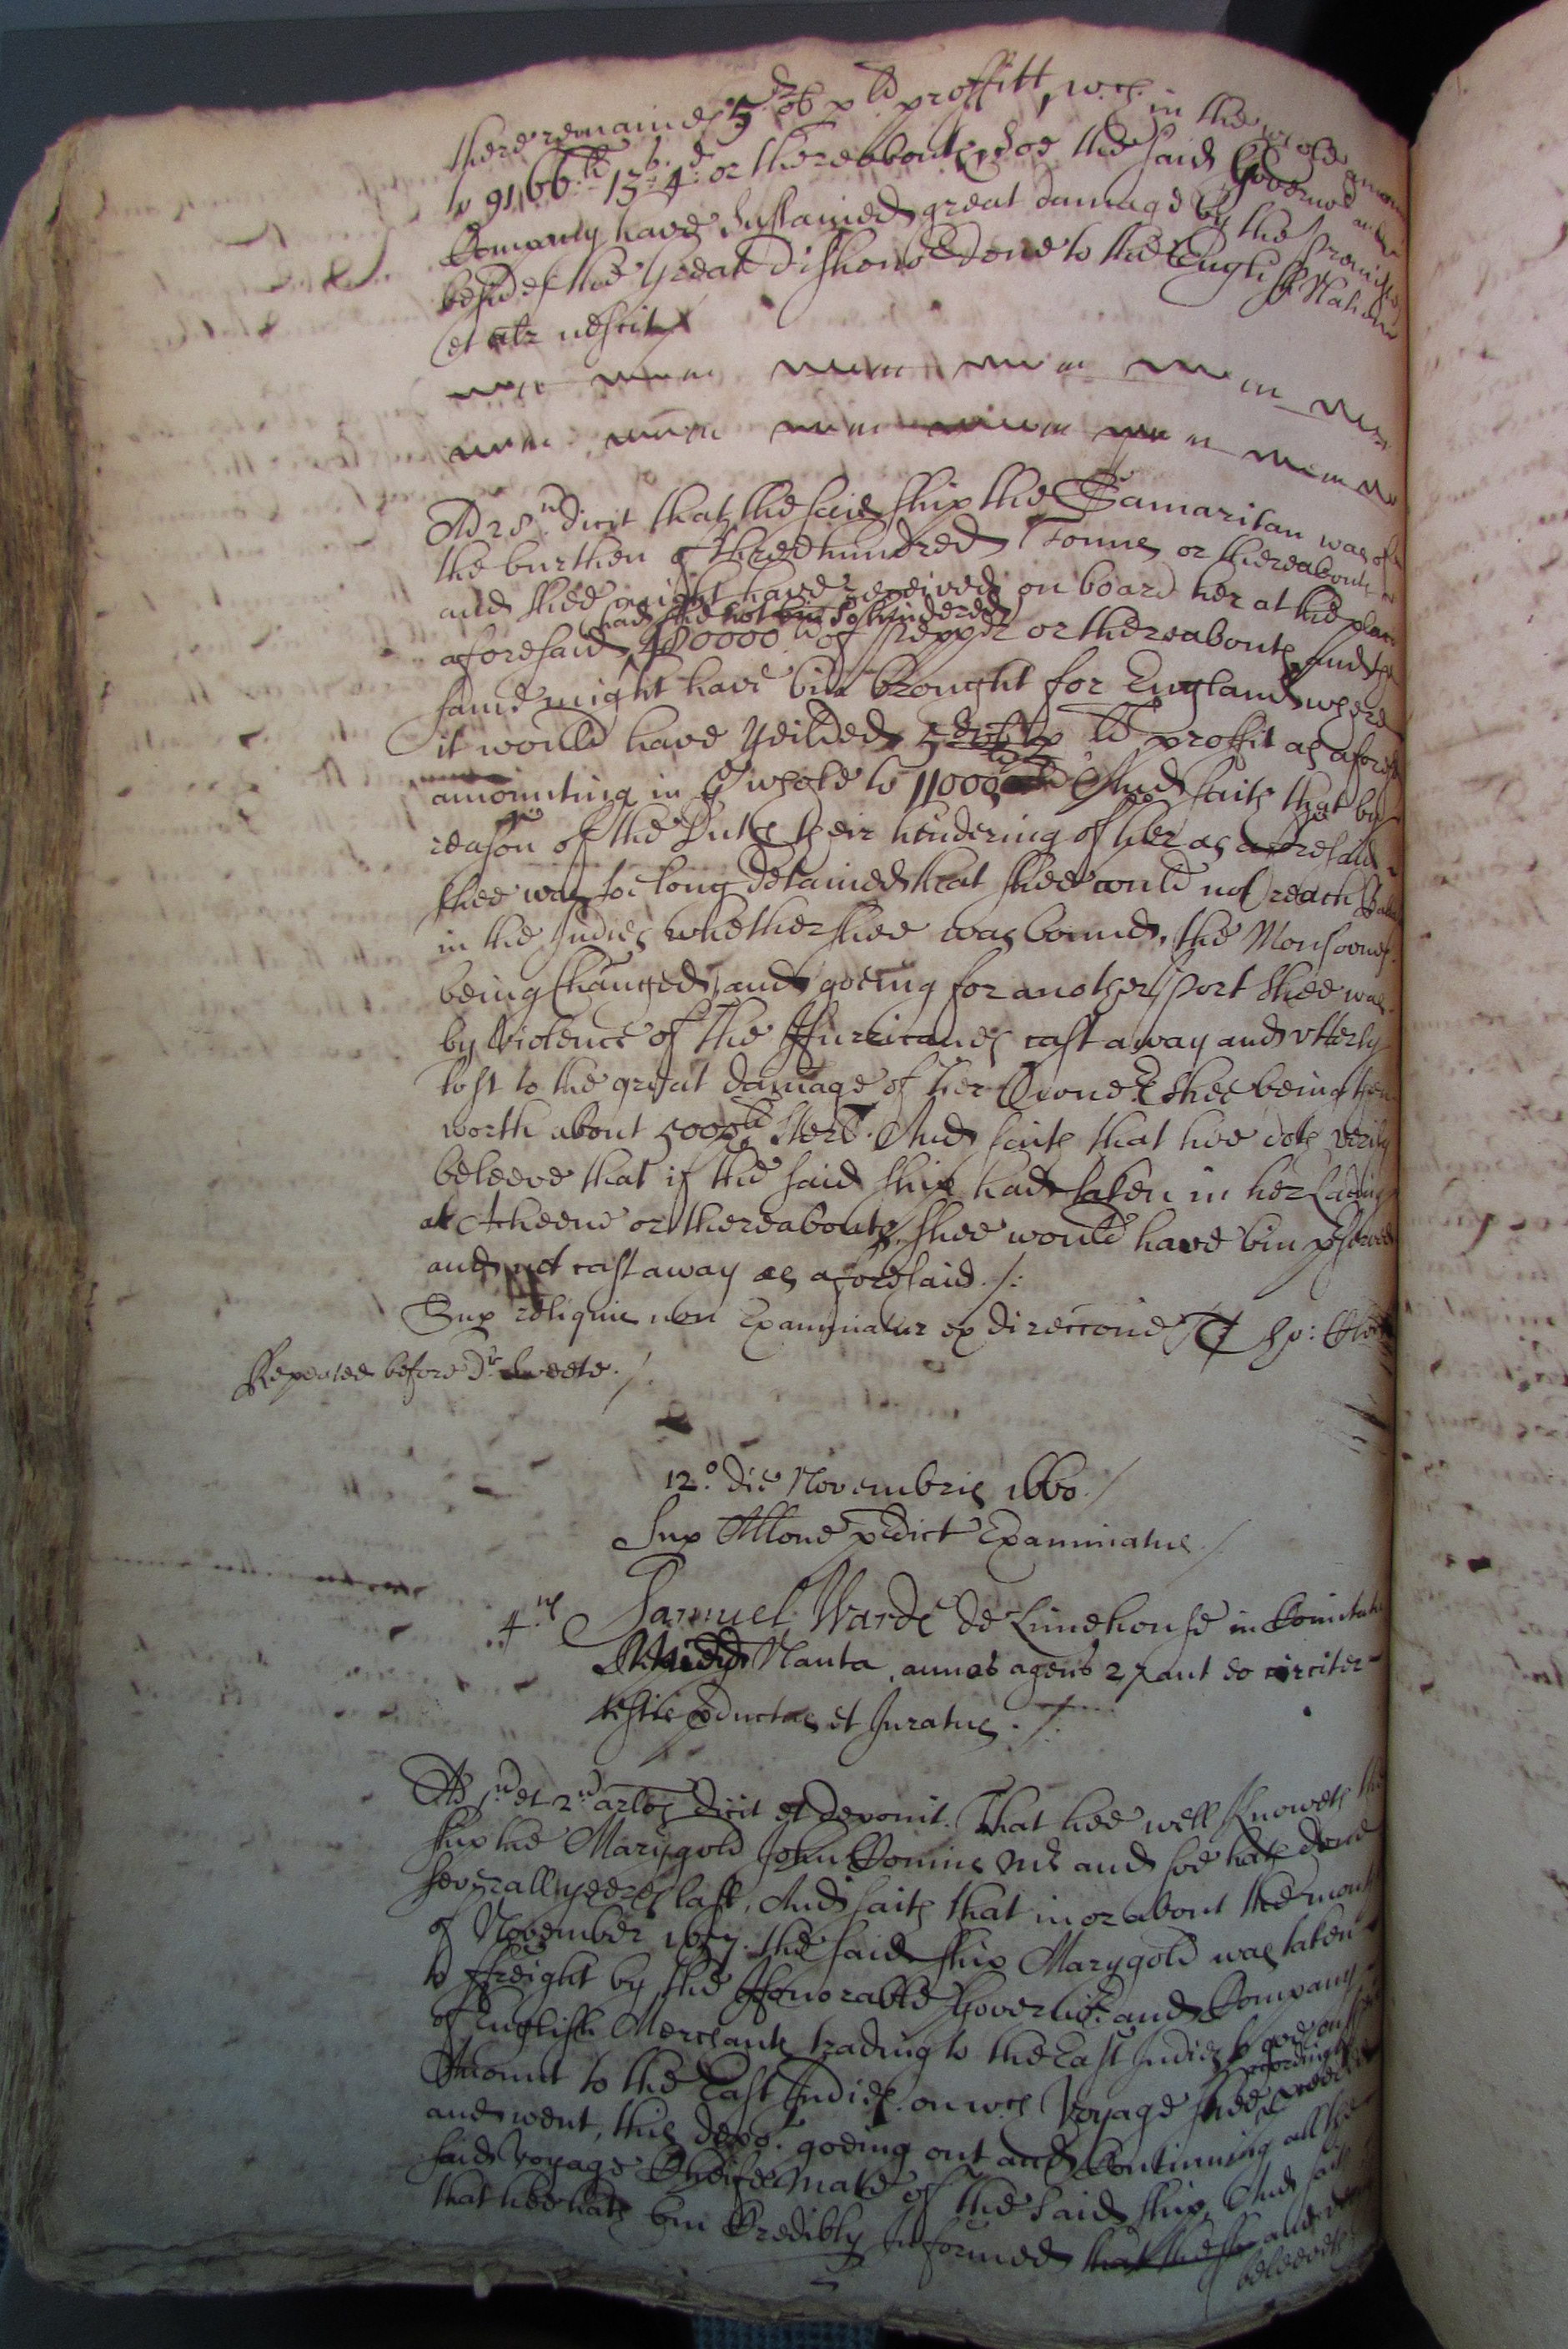 there remaines 5d ob p ld proffitt, wch in the whole amounts
to 9166ld 13s 4d or thereabouts, soe the said Governor and
Company have sustained great damage by the premisses
besides the great dishonor done to the English Nation
et alr nescit
Ad 28um dicit that the said ship the Samaritan was of
the burthen of three hundred Tonnes or thereabouts
and shee might have received on board her at the place
had shee not bin so hindered
aforesaid 480000 ld of Pepper or thereabouts and the
same might have bin brought for England where
it would have yeilded 5d ob p ld proffit as aforesd
amounting in ye whole to 11000 ld And saith that by
reason of the Dutch their hindering of her as aforesaid
shee was soe long detained that shee could not reach
in the Indies whether shee was bound, the Monsoones
being changed, and goeing for another Port shee was
by violence of the Hurricanes cast away and utterly
lost to the great damage of her Owners shee being then
worth about 5000 ld sterl. And saith that hee doth verily
beleeve that if the said ship had taken in her lading
at Acheene or thereabouts, shee would have bin pserved
and not cast away as aforesaid ./:
Sup reliquis non Examinatur ex direccone
Repeated before Dr Sweete ./.
12o die Novembris 1660 /
Sup Allone pdict Examinatus /
4us Samuel Warde de Limehouse in Comitatu
Nauta annos agens 27 aut eo circiter
testis pductus et Juratus ./:
Ad 1um et 2um arlos dicit et deponit. That hee well knoweth the
ship the Marygold John Comins Mr and soe hath done
severall yeeres last, And saith that in or about the moneth
of November 1657. the said ship Marygold was taken
to ffreight by the Honorable Governor and Company
of English Merchants trading to the East Indies to goe on their
Accompt to the East Indies. on wch Voyage shee accordingly
and went, this depot. goeing out and Continuing all the
said voyage Cheife Mate of the said ship, And saith
that hee hath bin Credibly Informed that the and
beleeveth